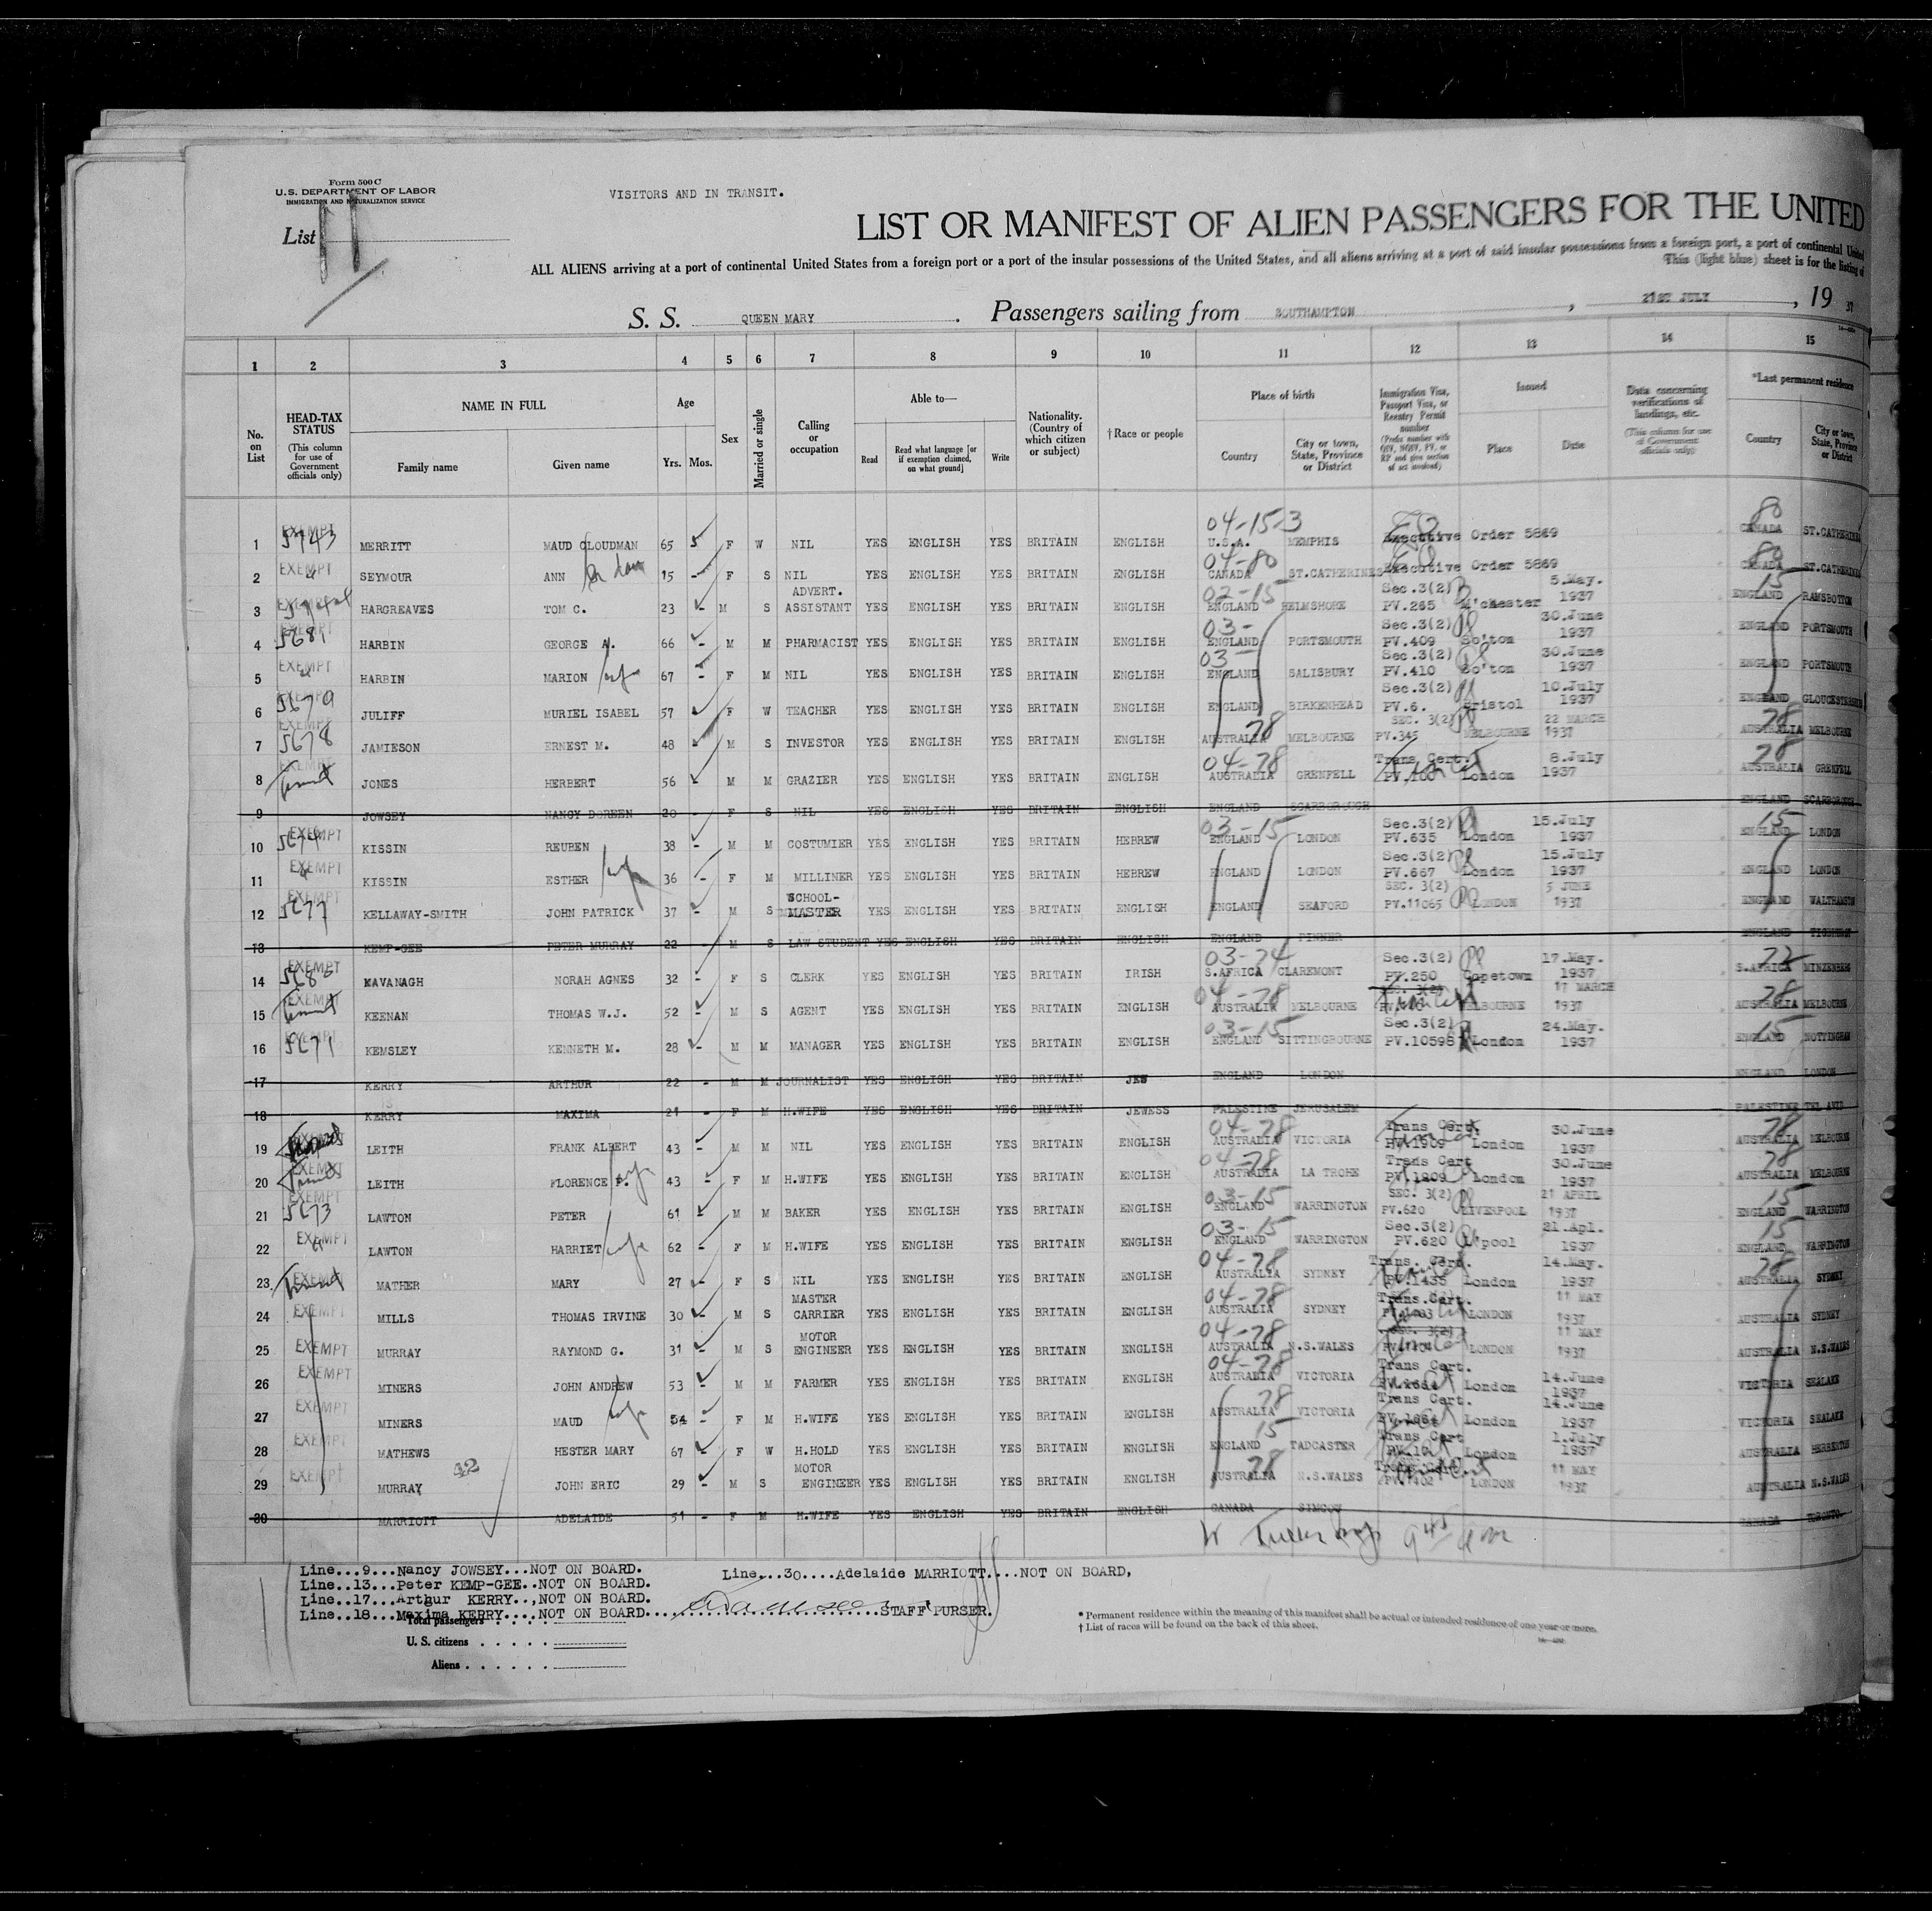 Form 500 C
U.S. DEPARTMENT OF LABOR
IMMIGRATION AND NATURALIZATION SERVICE
VISITORS AND IN TRANSIT.
List 11
LIST OR MANIFEST OF ALIEN PASSENGERS FOR THE UNITED
ALL ALIENS arriving at a port of continental United States from a foreign port or a port of the insular possessions of the United States, and all aliens arriving at a port of said insular possessions from a foreign port, a port of continental United
This (light blue) sheet is for the listing of
S. S. QUEEN MARY. Passengers sailing from SOUTHAMPTON, 21ST JULY, 19 37
1 2 3 4 5 6 7 8 9 10 11 12 13 14 15
No. on List
HEAD-TAX STATUS (This column for use of Government officials only)
NAME IN FULL Family name Given name
Age Yrs. Mos.
Sex
Married or single
Calling or occupation
Able to— Read Read what language [or if exemption claimed, on what ground] Write
Nationality. (Country of which citizen or subject)
†Race or people
Place of birth Country City or town, State, Province or District
Immigration Visa, Passport Visa, or Reentry Permit number (Prefix number with QIV, NQIV, PV, or RP and give section of act involved)
Issued Place Date
Data concerning verifications of landings, etc. (This column for use of Government officials only)
*Last permanent residence Country City or town, State, Province or District
1 EXEMPT 5743 MERRITT MAUD CLOUDMAN 65 5 F W NIL YES ENGLISH YES BRITAIN ENGLISH 04-15-3 U.S.A. MEMPHIS Executive Order 5869 80 CANADA ST.CATHERINES
2 EXEMPT SEYMOUR ANN 15 - F S NIL YES ENGLISH YES BRITAIN ENGLISH 04-80 CANADA ST.CATHERINES Executive Order 5869 80 CANADA ST.CATHERINES
3 EXEMPT HARGREAVES TOM C. 23 - M S ADVERT. ASSISTANT YES ENGLISH YES BRITAIN ENGLISH 02-15 ENGLAND HELMSHORE Sec.3(2) PV.265 M'chester 5.May. 1937 15 ENGLAND RAMSBOTTOM
4 EXEMPT 5681 HARBIN GEORGE A. 66 - M M PHARMACIST YES ENGLISH YES BRITAIN ENGLISH 03- ENGLAND PORTSMOUTH Sec.3(2) PV.409 So'ton 30.June 1937 ENGLAND PORTSMOUTH
5 EXEMPT HARBIN MARION wife 67 - F M NIL YES ENGLISH YES BRITAIN ENGLISH 03- ENGLAND SALISBURY Sec.3(2) PV.410 So'ton 30.June 1937 ENGLAND PORTSMOUTH
6 EXEMPT 5679 JULIFF MURIEL ISABEL 57 F W TEACHER YES ENGLISH YES BRITAIN ENGLISH ENGLAND BIRKENHEAD Sec.3(2) PV.6. Bristol 10.July 1937 ENGLAND GLOUCESTERSHIRE
7 EXEMPT 5678 JAMIESON ERNEST M. 48 M S INVESTOR YES ENGLISH YES BRITAIN ENGLISH 78 AUSTRALIA MELBOURNE SEC. 3(2) PV.345 MELBOURNE 22 MARCH 1937 78 AUSTRALIA MELBOURNE
8 EXEMPT Transit JONES HERBERT 56 M M GRAZIER YES ENGLISH YES BRITAIN ENGLISH 04-78 AUSTRALIA GRENFELL Trans Cert. PV.100 London 8.July 1937 78 AUSTRALIA GRENFELL
9 JOWSEY NANCY DOREEN 20 - F S NIL YES ENGLISH YES BRITAIN ENGLISH ENGLAND SCARBOROUGH ENGLAND SCARBOROUGH
10 EXEMPT 5674 KISSIN REUBEN 38 - M M COSTUMIER YES ENGLISH YES BRITAIN HEBREW 03-15 ENGLAND LONDON Sec.3(2) PV.635 London 15.July 1937 15 ENGLAND LONDON
11 EXEMPT KISSIN ESTHER wife 36 - F M MILLINER YES ENGLISH YES BRITAIN HEBREW ENGLAND LONDON Sec.3(2) PV.667 London 15.July 1937 ENGLAND LONDON
12 EXEMPT 5677 KELLAWAY-SMITH JOHN PATRICK 37 - M S SCHOOL-MASTER YES ENGLISH YES BRITAIN ENGLISH ENGLAND SEAFORD SEC. 3(2) PV.11065 LONDON 5 JUNE 1937 ENGLAND WALTHAMSTOW
13 KEMP-GEE PETER MURRAY 22 - M S LAW STUDENT YES ENGLISH YES BRITAIN ENGLISH ENGLAND PINNER ENGLAND
14 EXEMPT KAVANAGH NORAH AGNES 32 - F S CLERK YES ENGLISH YES BRITAIN IRISH 03-74 S.AFRICA CLAREMONT Sec.3(2) PV.250 Capetown 17.May. 1937 S.AFRICA MINZENBERG
15 EXEMPT Transit KEENAN THOMAS W.J. 52 - M S AGENT YES ENGLISH YES BRITAIN ENGLISH 04-78 AUSTRALIA MELBOURNE SEC. 3(2) MELBOURNE 17 MARCH 1937 78 AUSTRALIA MELBOURNE
16 EXEMPT 5671 KEMSLEY KENNETH M. 28 - M M MANAGER YES ENGLISH YES BRITAIN ENGLISH 03-15 ENGLAND SITTINGBOURNE Sec.3(2) PV.10598 London 24.May. 1937 15 ENGLAND NOTTINGHAM
17 KERRY ARTHUR 22 - M M JOURNALIST YES ENGLISH YES BRITAIN JEW ENGLAND LONDON ENGLAND LONDON
18 KERRY MAXIMA 21 - F M H.WIFE YES ENGLISH YES BRITAIN JEWESS PALESTINE JERUSALEM PALESTINE TEL AVIV
19 EXEMPT LEITH FRANK ALBERT 43 - M M NIL YES ENGLISH YES BRITAIN ENGLISH 04-78 AUSTRALIA VICTORIA Trans Cert. PV.1909 London 30.June 1937 78 AUSTRALIA MELBOURNE
20 EXEMPT Transit LEITH FLORENCE P. wife 43 - F M H.WIFE YES ENGLISH YES BRITAIN ENGLISH 04-78 AUSTRALIA LA TROHE Trans Cert PV.1909 London 30.June 1937 78 AUSTRALIA MELBOURNE
21 EXEMPT 5673 LAWTON PETER 61 - M M BAKER YES ENGLISH YES BRITAIN ENGLISH 03-15 ENGLAND WARRINGTON SEC. 3(2) PV.620 LIVERPOOL 21 APRIL 1937 15 ENGLAND WARRINGTON
22 EXEMPT LAWTON HARRIET wife 62 - F M H.WIFE YES ENGLISH YES BRITAIN ENGLISH 03-15 ENGLAND WARRINGTON Sec.3(2) PV.620 L'pool 21.Apl. 1937 15 ENGLAND WARRINGTON
23 EXEMPT Transit MATHER MARY 27 - F S NIL YES ENGLISH YES BRITAIN ENGLISH 04-78 AUSTRALIA SYDNEY Trans. Cert. PV.1435 London 14.May. 1937 78 AUSTRALIA SYDNEY
24 EXEMPT MILLS THOMAS IRVINE 30 - M S MASTER CARRIER YES ENGLISH YES BRITAIN ENGLISH 04-78 AUSTRALIA SYDNEY Trans.Cert. LONDON 11 MAY 1937 AUSTRALIA SYDNEY
25 EXEMPT MURRAY RAYMOND G. 31 - M S MOTOR ENGINEER YES ENGLISH YES BRITAIN ENGLISH 04-78 AUSTRALIA N.S.WALES SEC. 3(2) LONDON 11 MAY 1937 AUSTRALIA N.S.WALES
26 EXEMPT MINERS JOHN ANDREW 53 - M M FARMER YES ENGLISH YES BRITAIN ENGLISH 04-78 AUSTRALIA VICTORIA Trans Cert. London 14.June 1937 VICTORIA SEALAKE
27 EXEMPT MINERS MAUD wife 54 - F M H.WIFE YES ENGLISH YES BRITAIN ENGLISH 78 AUSTRALIA VICTORIA Trans Cert London 14.June 1937 VICTORIA SEALAKE
28 EXEMPT MATHEWS HESTER MARY 67 - F W H.HOLD YES ENGLISH YES BRITAIN ENGLISH 15 ENGLAND TADCASTER Trans Cert London 1.July 1937 AUSTRALIA HERBERTON
29 EXEMPT MURRAY JOHN ERIC 29 - M S MOTOR ENGINEER YES ENGLISH YES BRITAIN ENGLISH 78 AUSTRALIA N.S.WALES PV.1402 LONDON 11 MAY 1937 AUSTRALIA N.S.WALES
30 MARRIOTT ADELAIDE 51 - F M H.WIFE YES ENGLISH YES BRITAIN ENGLISH CANADA SIMCOE CANADA TORONTO
Line...9...Nancy JOWSEY...NOT ON BOARD. Line...30....Adelaide MARRIOTT....NOT ON BOARD,
Line..13...Peter KEMP-GEE..NOT ON BOARD.
Line..17...Arthur KERRY...NOT ON BOARD.
Line..18...Maxima KERRY....NOT ON BOARD. STAFF PURSER.
Total passengers
U. S. citizens
Aliens
* Permanent residence within the meaning of this manifest shall be actual or intended residence of one year or more.
† List of races will be found on the back of this sheet.